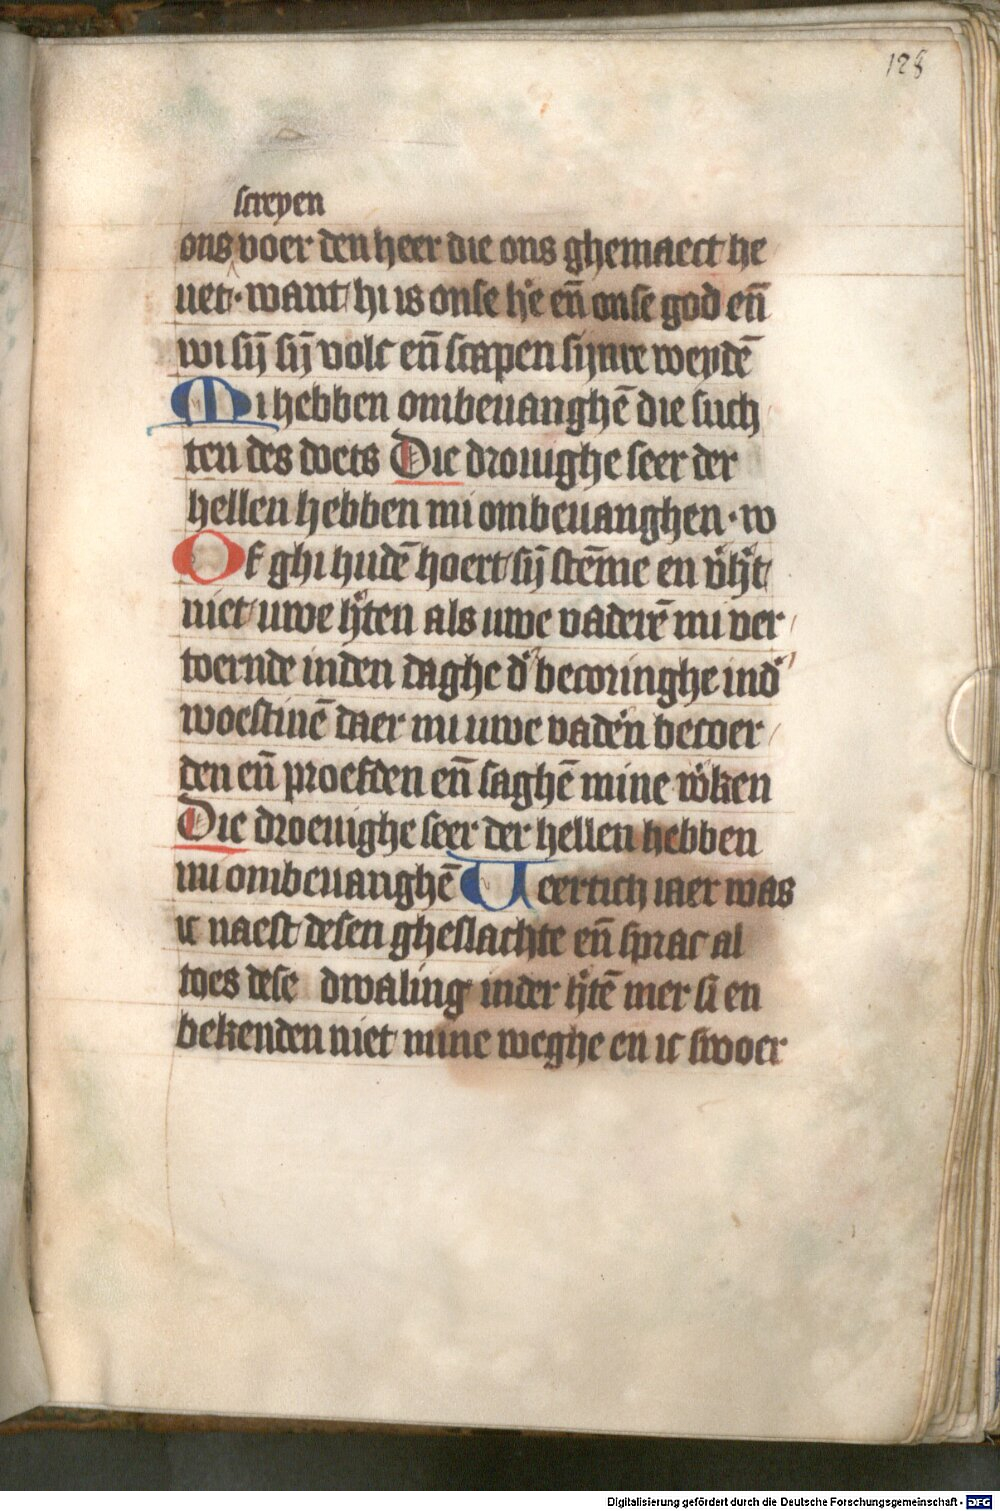 128
screyen
ons voer den heer die ons ghemaect he
uet · want hi is onse he͛ en̄ onse god en̄
wi sij̄ sij̄ volc en̄ scapen sijnre weydē
Mi hebben ombeuanghē die such
ten des doets Die drouighe seer der
hellen hebben mi ombeuanghen · w
Of ghi hudē hoert sij̄ stēme en v͛h͛t
niet uwe h͛ten als uwe vaderē mi ver
toernde inden daghe d͛ becoringhe ind͛
woestinē daer mi uwe vade͛n becoer
den en̄ proefden en̄ saghē mine w͛ken
Die droeuighe seer der hellen hebben
mi ombeuanghē Veertich iaer was
ic naest desen gheslachte en̄ sprac al
toes dese dwaling inder h͛tē mer si en
bekenden niet mine weghe en ic swoer
Digitalisierung gefördert durch die Deutsche Forschungsgemeinschaft - DFG